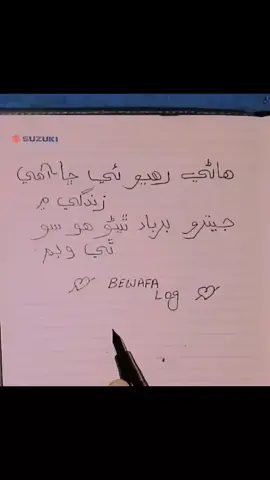 SUZUKI
هاڻي رهيو ئي ڇا آهي
زندگي ۾
جيترو برباد ٿيڻو هو سو
ٿي ويم
BEWAFA
Log